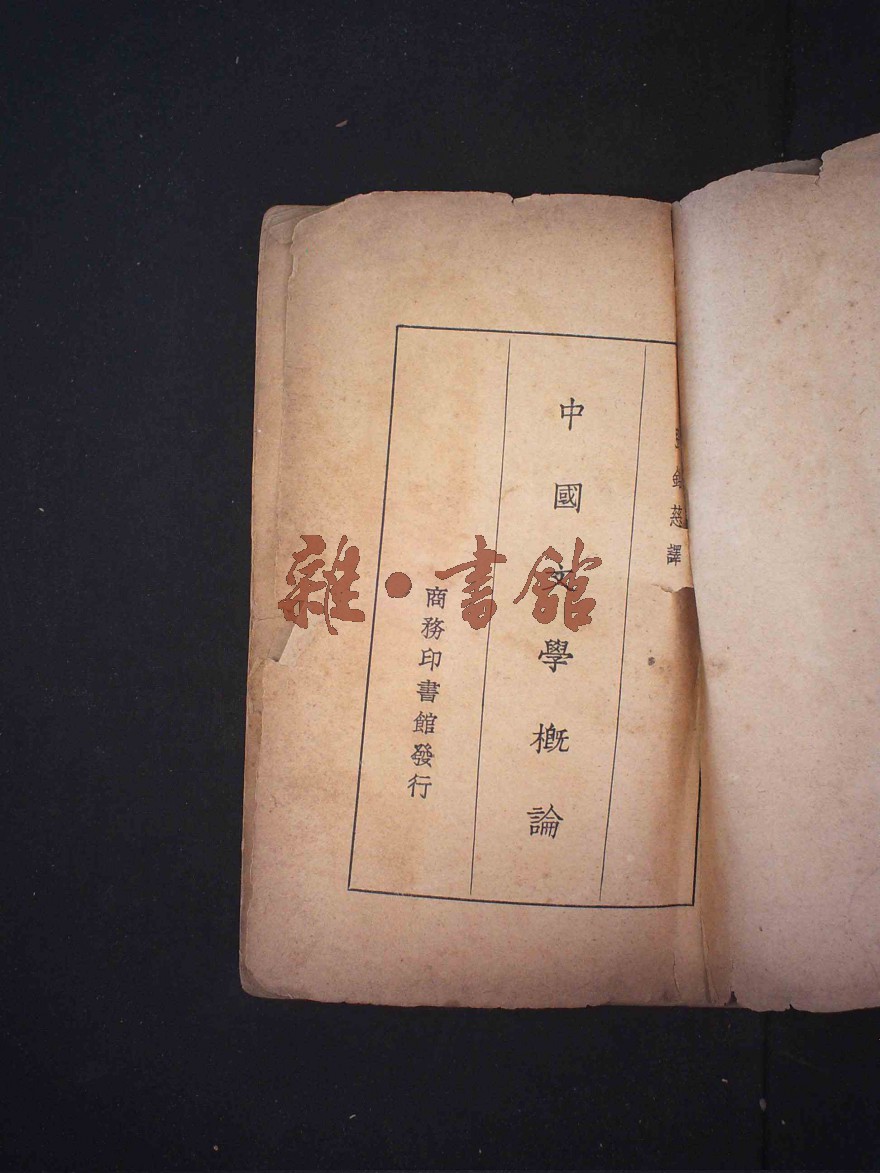 錫慈譯
中國文學概論
商務印書館發行
雜·書館